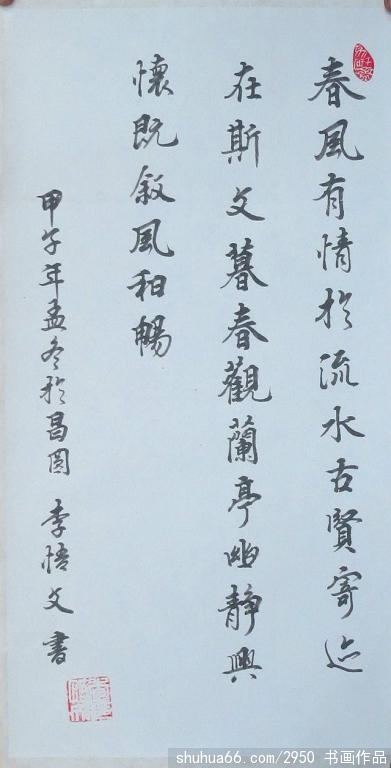 春風有情於流水古賢寄迹
在斯文暮春觀蘭亭幽靜興
懷既敘風和暢
甲午年孟冬於昌圖 李悟文書
shuhua66.com/2950 书画作品